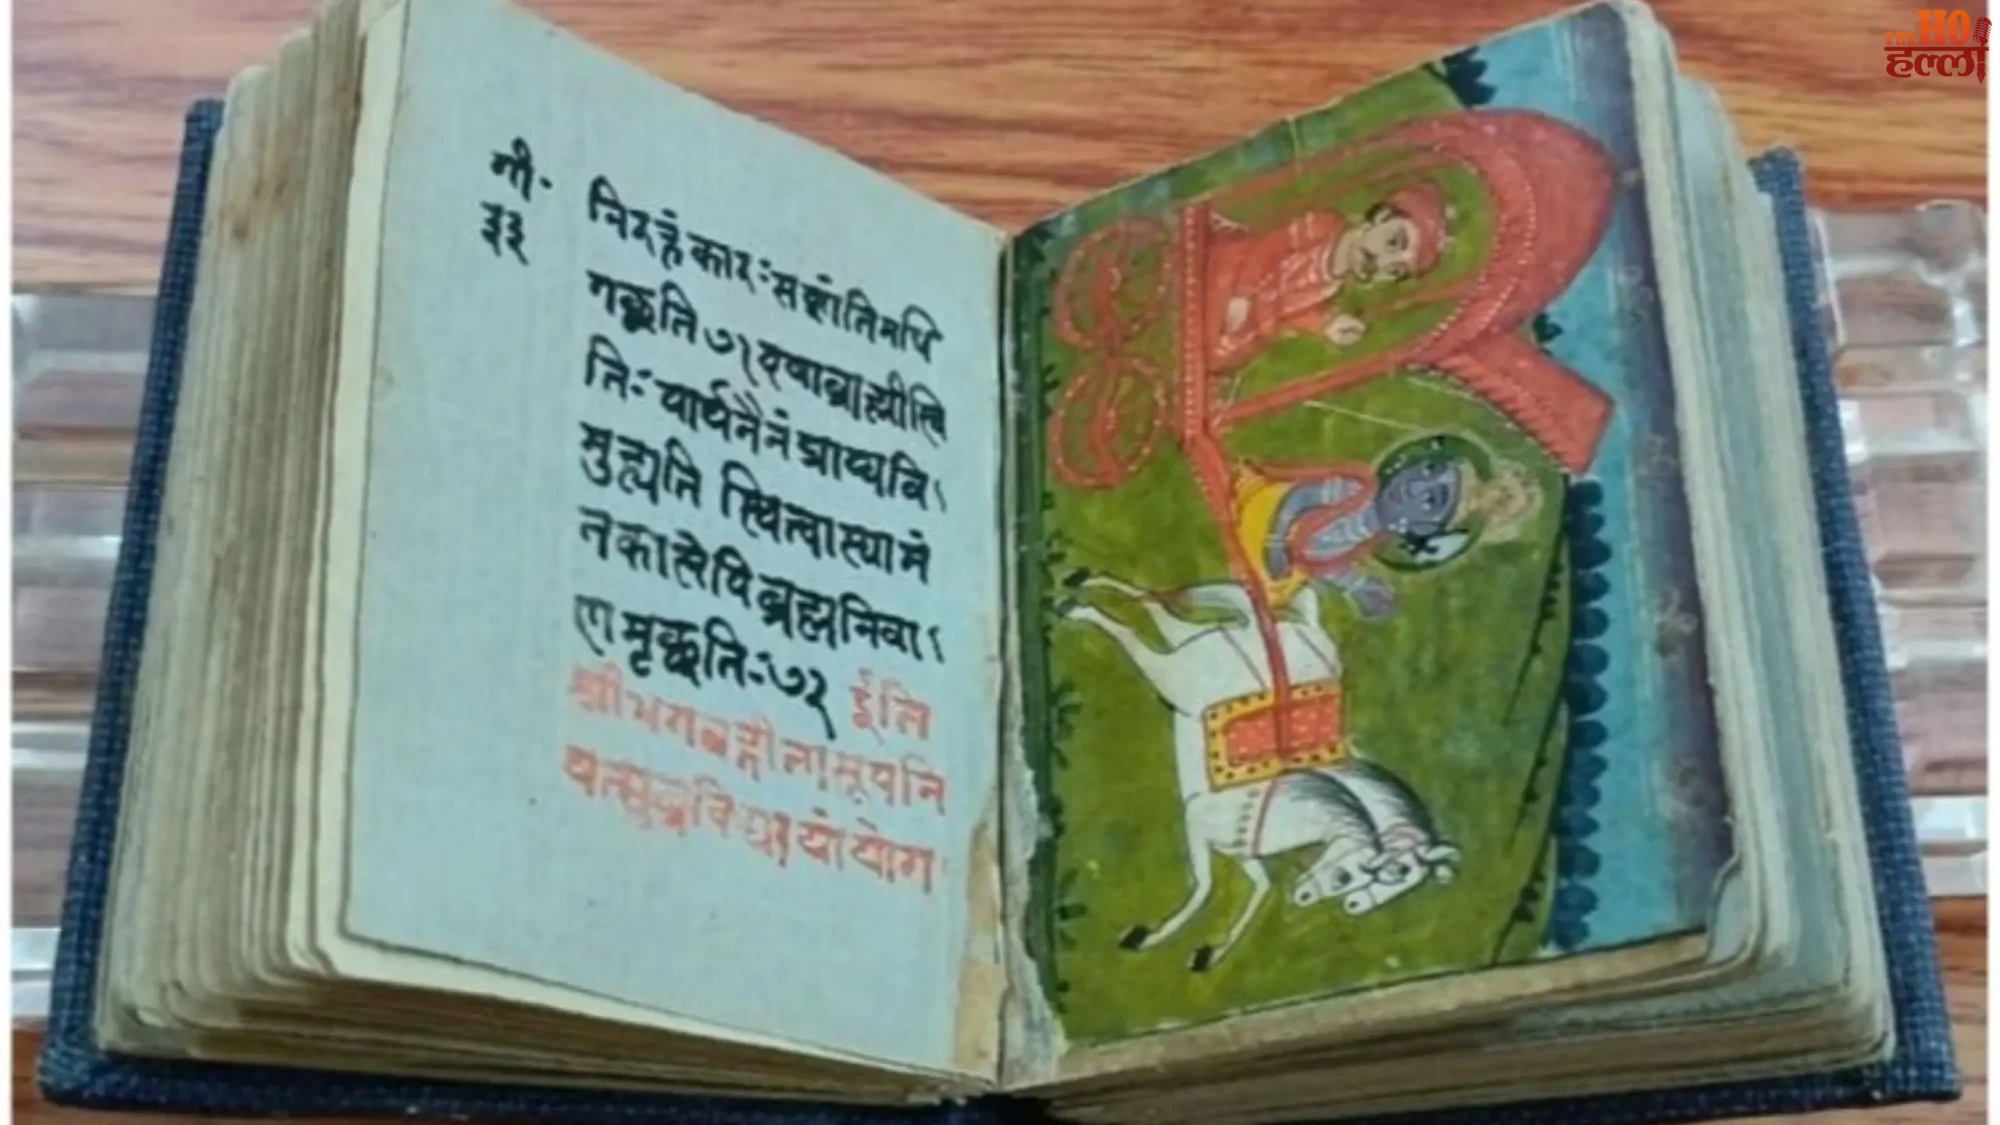 गी॰
३३
निरहंकारः सशांतिमधि
गछति ७१ एषाब्राह्मीस्थि
तिः पार्थनैनंप्राप्यवि
मुह्यति स्थित्वास्यामं
तकालेपिब्रह्मनिर्वा
णमृछतिः ७२ ईति
श्रीभगवद्गीतासूपनि
षत्सुब्रह्मविद्यायांयोग
THE HO
हल्ला